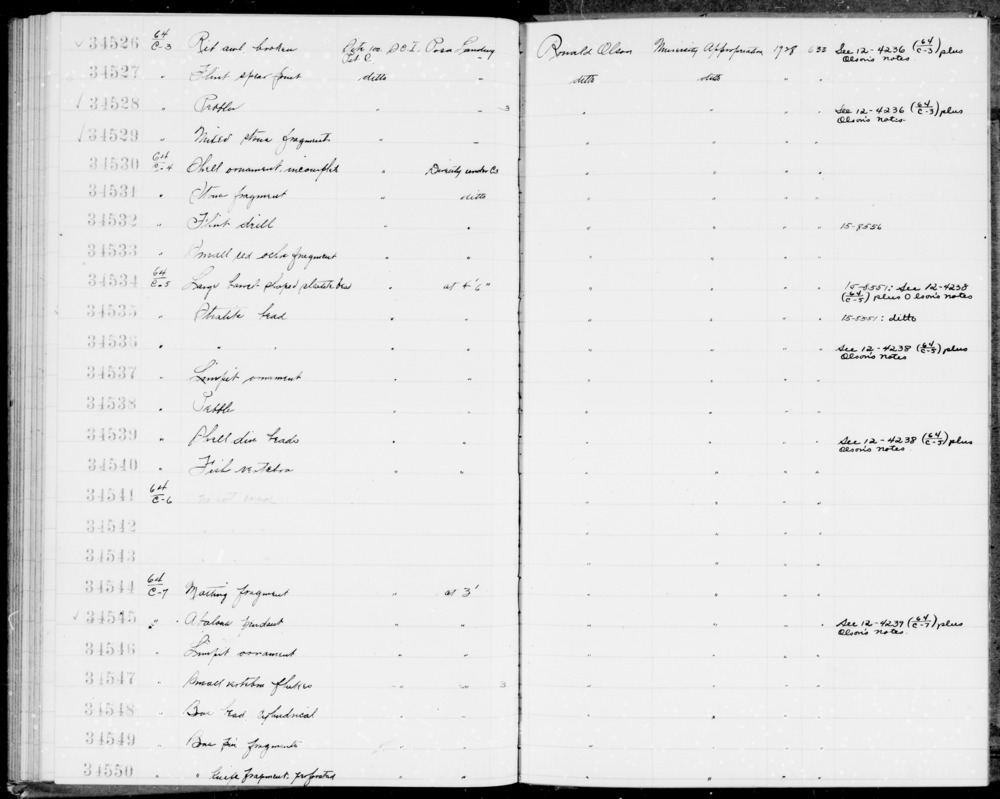 ✓ 34526 64/C-3 awl broken S.C.I. Posa Landing Ronald Olson University Appropriation 1928 See 12-4236 (64/C-3) plus
Olson's notes.
34527 " Flint spear point ditto " ditto ditto " "
✓ 34528 " Pebbles " " 3 " " " " See 12-4236 (64/C-3) plus
Olson's notes.
✓ 34529 " Mixed stone fragments " " " " " "
34530 64/C-4 Shell ornament, incomplete " Directly under C3 " " " "
34531 " Stone fragment " ditto " " " "
34532 " Flint drill " " " " " " 15-8556
34533 " Small red ocher fragment " " " " " "
34534 64/C-5 Large barrel shaped steatite bead " at 4'6" " " " " 15-5551: See 12-4238
(64/C-5) plus Olson's notes
34535 " Steatite bead " " " " " " 15-5551: ditto
34536 " " " " " " " " " See 12-4238 (64/C-5) plus
Olson's notes
34537 " Limpit ornament " " " " " "
34538 " Pebble " " " " " "
34539 " Shell disc beads " " " " " " See 12-4238 (64/C-5) plus
Olson's notes.
34540 " Fish vertebra " " " " " "
34541 64/C-6 " " " "
34542 " " " "
34543 " " " "
34544 64/C-7 Matting fragment " at 3' " " " "
✓ 34545 " Abalone pendant " " " " " " See 12-4239 (64/C-7) plus
Olson's notes.
34546 " Limpit ornament " " " " " "
34547 " Small " " 3 " " " "
34548 " Bone bead cylindrical " " " " " "
34549 " Bone pin fragments " " " " " "
34550 " " fragment, perforated " " " " " "